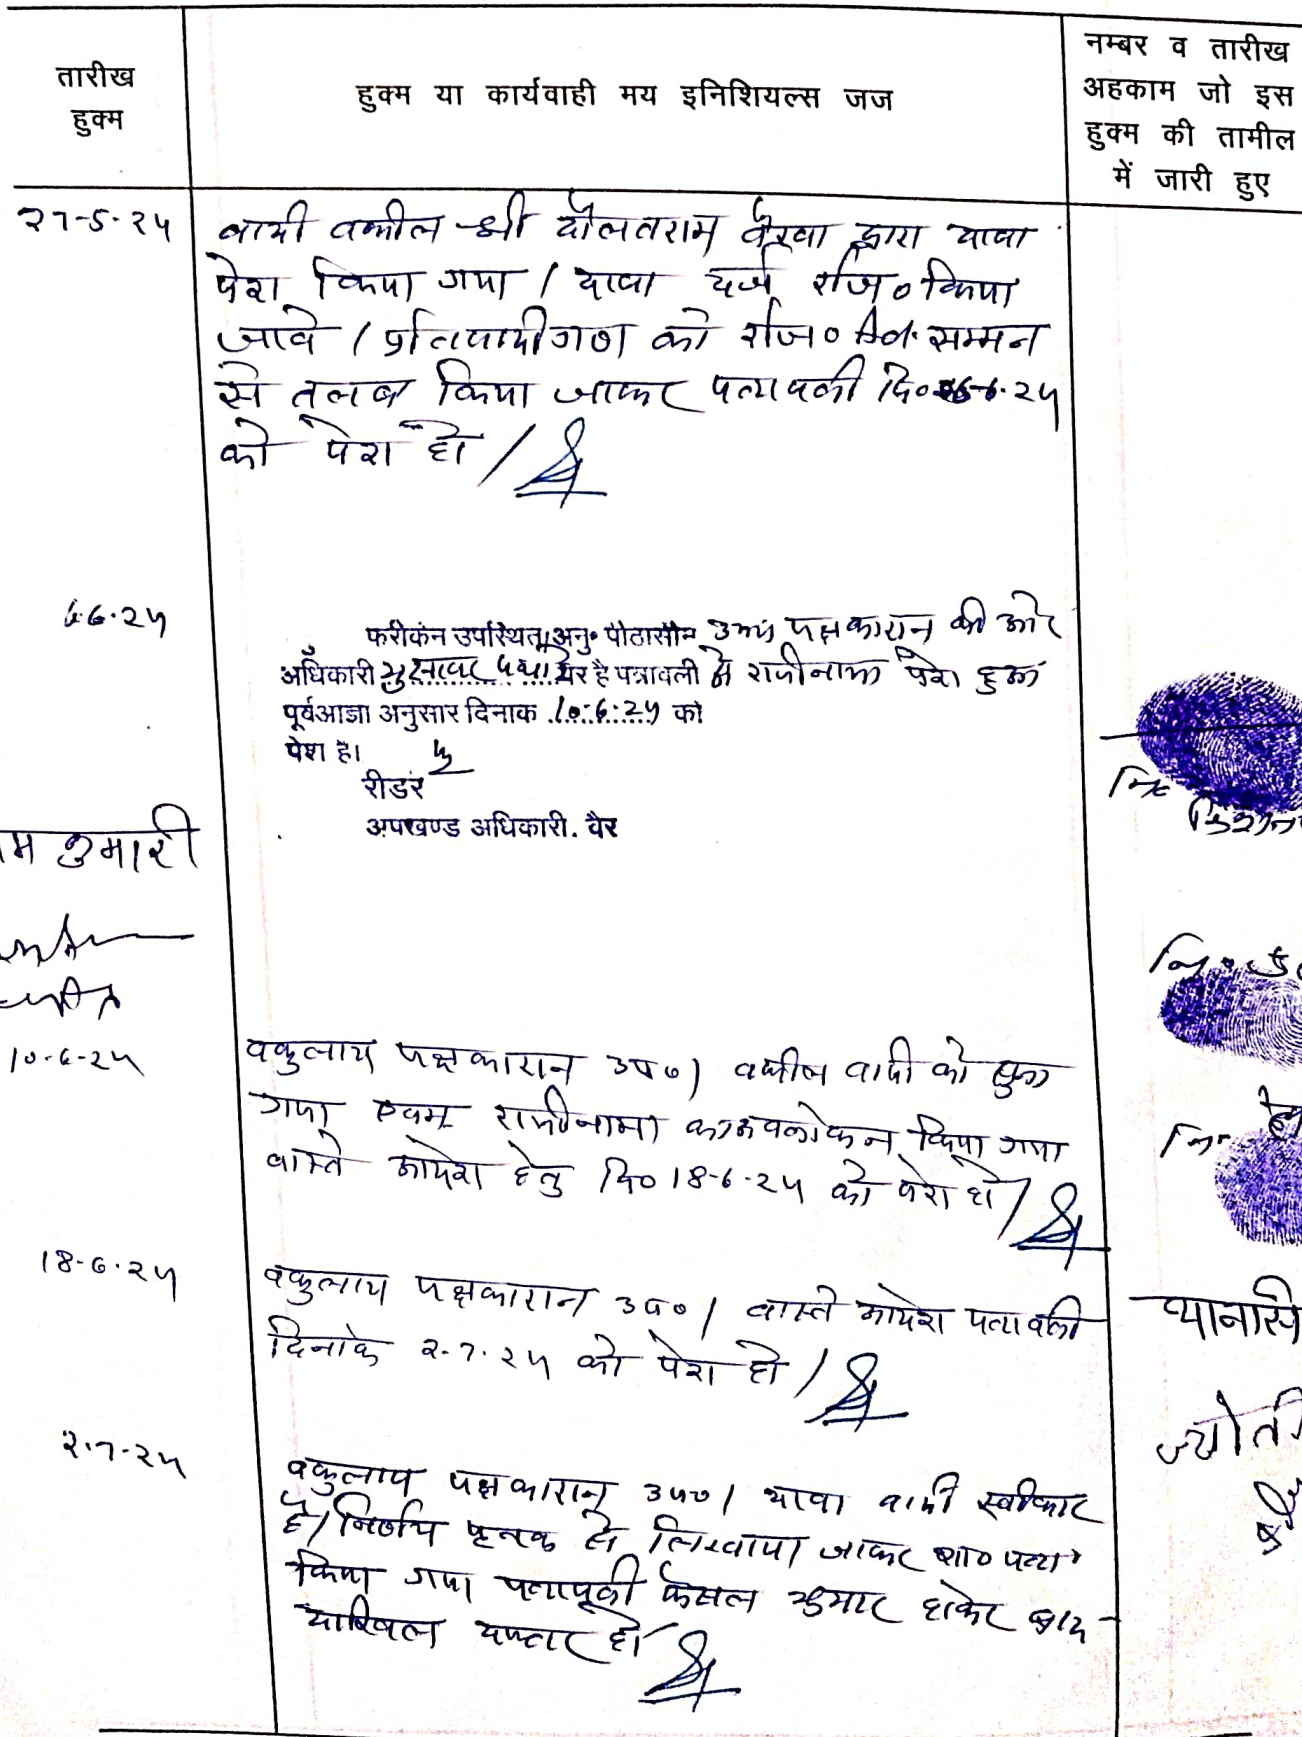 तारीख
हुक्म
हुक्म या कार्यवाही मय इनिशियल्स जज
नम्बर व तारीख
अहकाम जो इस
हुक्म की तामील
में जारी हुए
27-5-24
वादी वकील श्री दौलतराम बैरवा द्वारा दावा
पेश किया गया। दावा दर्ज रजि० किया
जावे। प्रतिवादीगण को रजि० Ad. सम्मन
से तलब किया जाकर पत्रावली दि० 6-6-24
को पेश हो।
6.6.24
फरीकेन उपस्थित। अनु० पीठासीन उभय पक्षकारान की ओर
अधिकारी है पत्रावली में राजीनामा पेश हुआ
पूर्व आज्ञा अनुसार दिनाक 10.6.24 को
पेश है।
रीडर
उपखण्ड अधिकारी. वैर
कुमारी
10-6-24
वकुलाय पक्षकारान उप०। वकील वादी को सुना
गया एवम राजीनामा का अवलोकन किया गया
वास्ते आदेश हेतु दि० 18-6-24 को पेश हो।
18-6-24
वकुलाय पक्षकारान उप०। वास्ते आदेश पत्रावली
दिनांक 2.7.24 को पेश हो।
ज्योती
2.7.24
वकुलाय पक्षकारान उप०। दावा वादी स्वीकार
है। निर्णय पृथक से लिखाया जाकर शा० पत्रा०
किया गया पत्रावली फैसल शुमार होकर बाद
दाखिल दफ्तर हो।